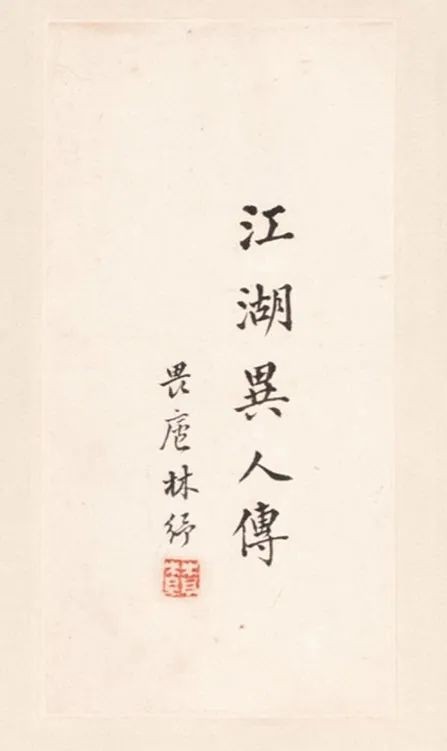 江湖異人傳
畏廬林紓